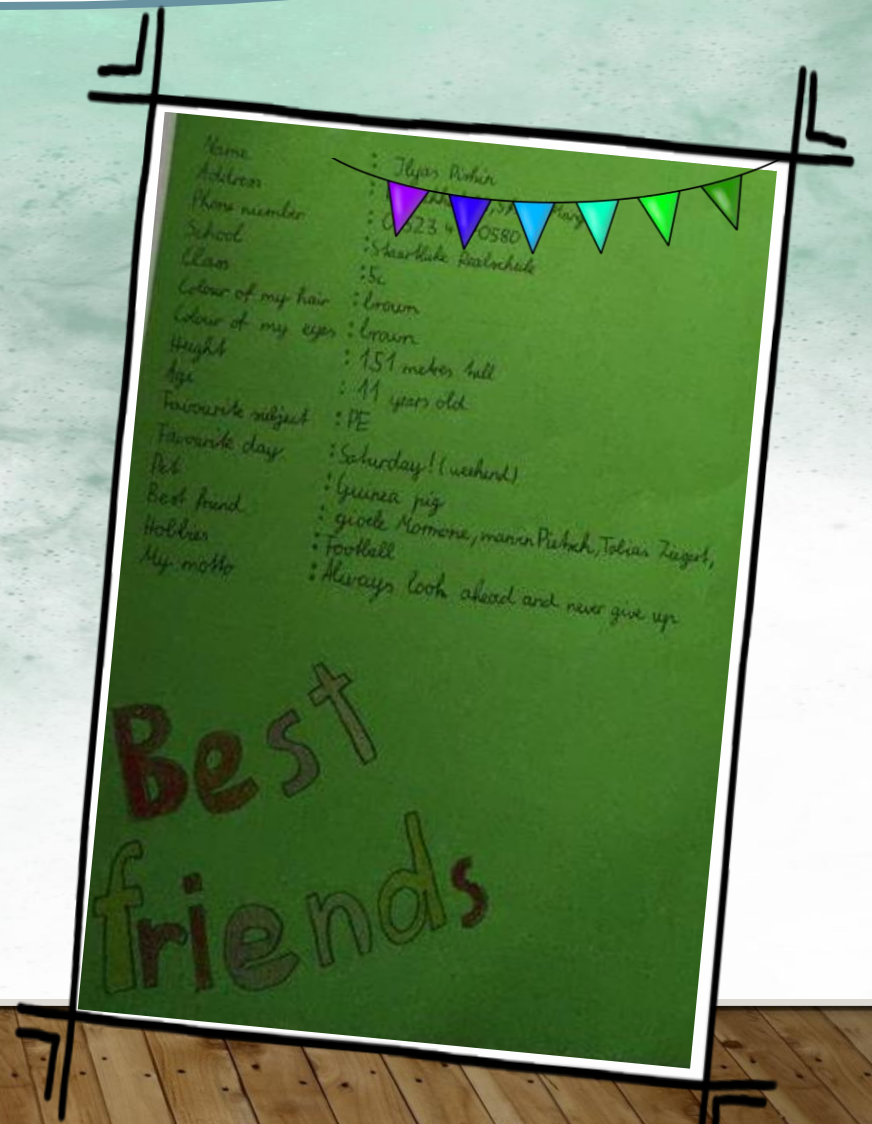 Name : Ilyas
Address :
Phone number :
School : Realschule
Class : 5c
Colour of my hair : brown
Colour of my eyes : brown
Height : 151 metres tall
Age : 11 years old
Favourite subject : PE
Favourite day : Saturday! (weekend)
Pet : Guinea pig
Best friend : gioele Morrone, marvin Pietsch, Tobias Ziegert,
Hobbies : Football
My motto : Always look ahead and never give up
Best
friends